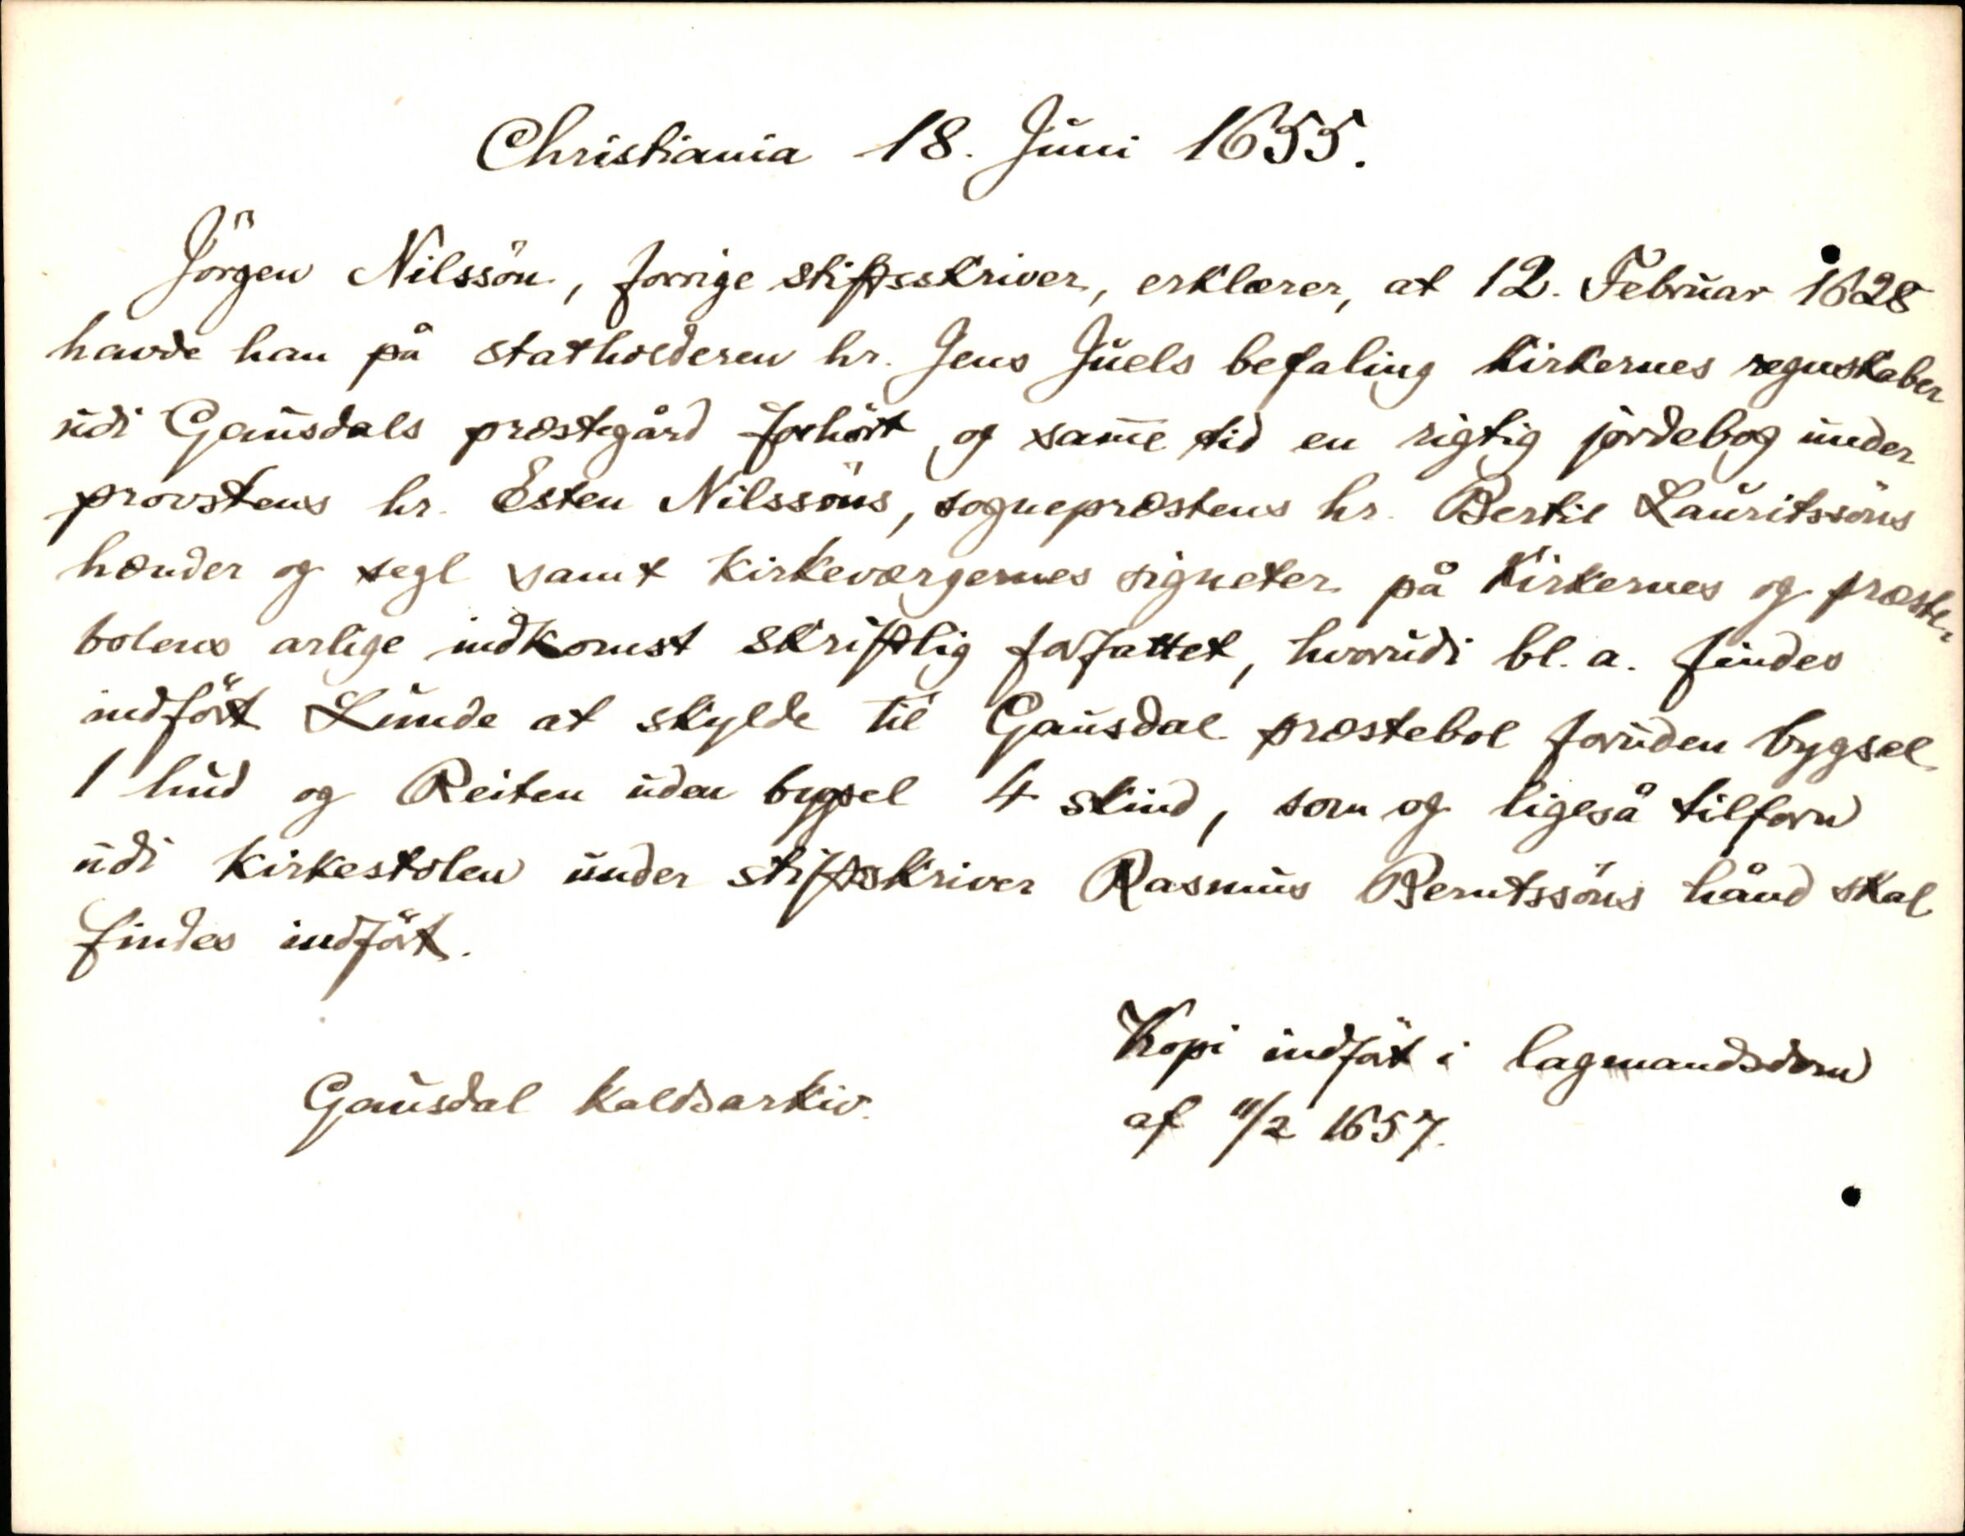 Christiania 18. Juni 1655.
Jörgen Nilssön, forrige stiftsskriver, erklærer, at 12. Februar 1628
havde han på statholderen hr. Jens Juels befaling kirkernes regnskaber
udi Gausdals præstegård forhört og sam̄e tid en rigtig jordebog under
provstens hr. Esten Nilssöns, sognepræstens hr. Bertil Lauritssöns
hænder og segl samt kirkeværgernes signeter på kirkernes og præste-
bolens årlige indkomst skriftlig forfattet, hvorudi bl. a. findes
indfört Lunde at skylde til Gausdal præstebol foruden bygsel
1 hud og Reiten uden bygsel 4 skind, som og ligeså tilforn
udi kirkestolen under stiftsskriver Rasmus Berntssöns hånd skal
findes indfört.
Kopi indfört i lagmandsdom
af 11/2 1657.
Gausdal kaldsarkiv.